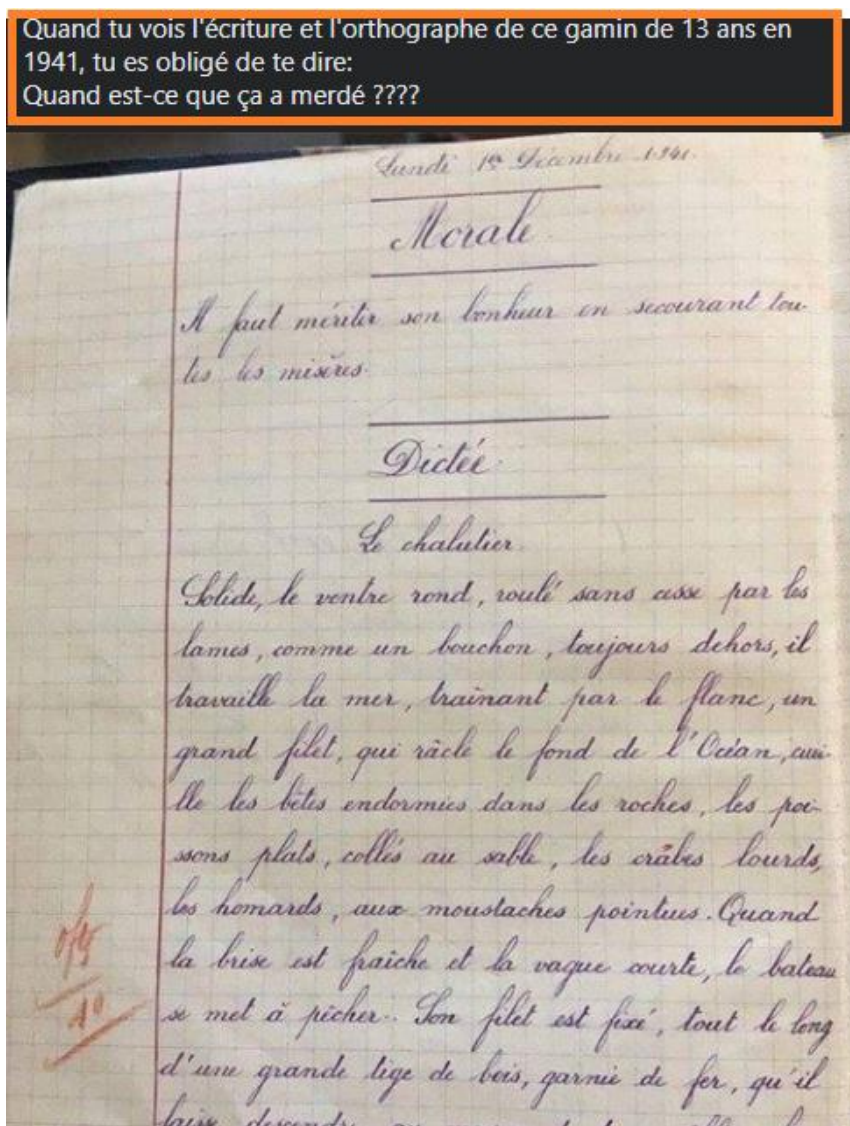 Quand tu vois l'écriture et l'orthographe de ce gamin de 13 ans en
1941, tu es obligé de te dire:
Quand est-ce que ça a merdé ????
Lundi 1er Décembre 1941.
Morale
Il faut mériter son bonheur en secourant tou-
tes les misères.
Dictée.
Le chalutier.
Solide, le ventre rond, roulé sans cesse par les
lames, comme un bouchon, toujours dehors, il
travaille la mer, traînant par le flanc, un
grand filet, qui râcle le fond de l'Océan, cuei-
lle les bêtes endormies dans les roches, les poi-
ssons plats, collés au sable, les crâbes lourds,
les homards, aux moustaches pointues. Quand
la brise est fraîche et la vague courte, le bateau
se met à pêcher. Son filet est fixé, tout le long
10
d'une grande tige de bois, garnie de fer, qu'il
laisse descendre